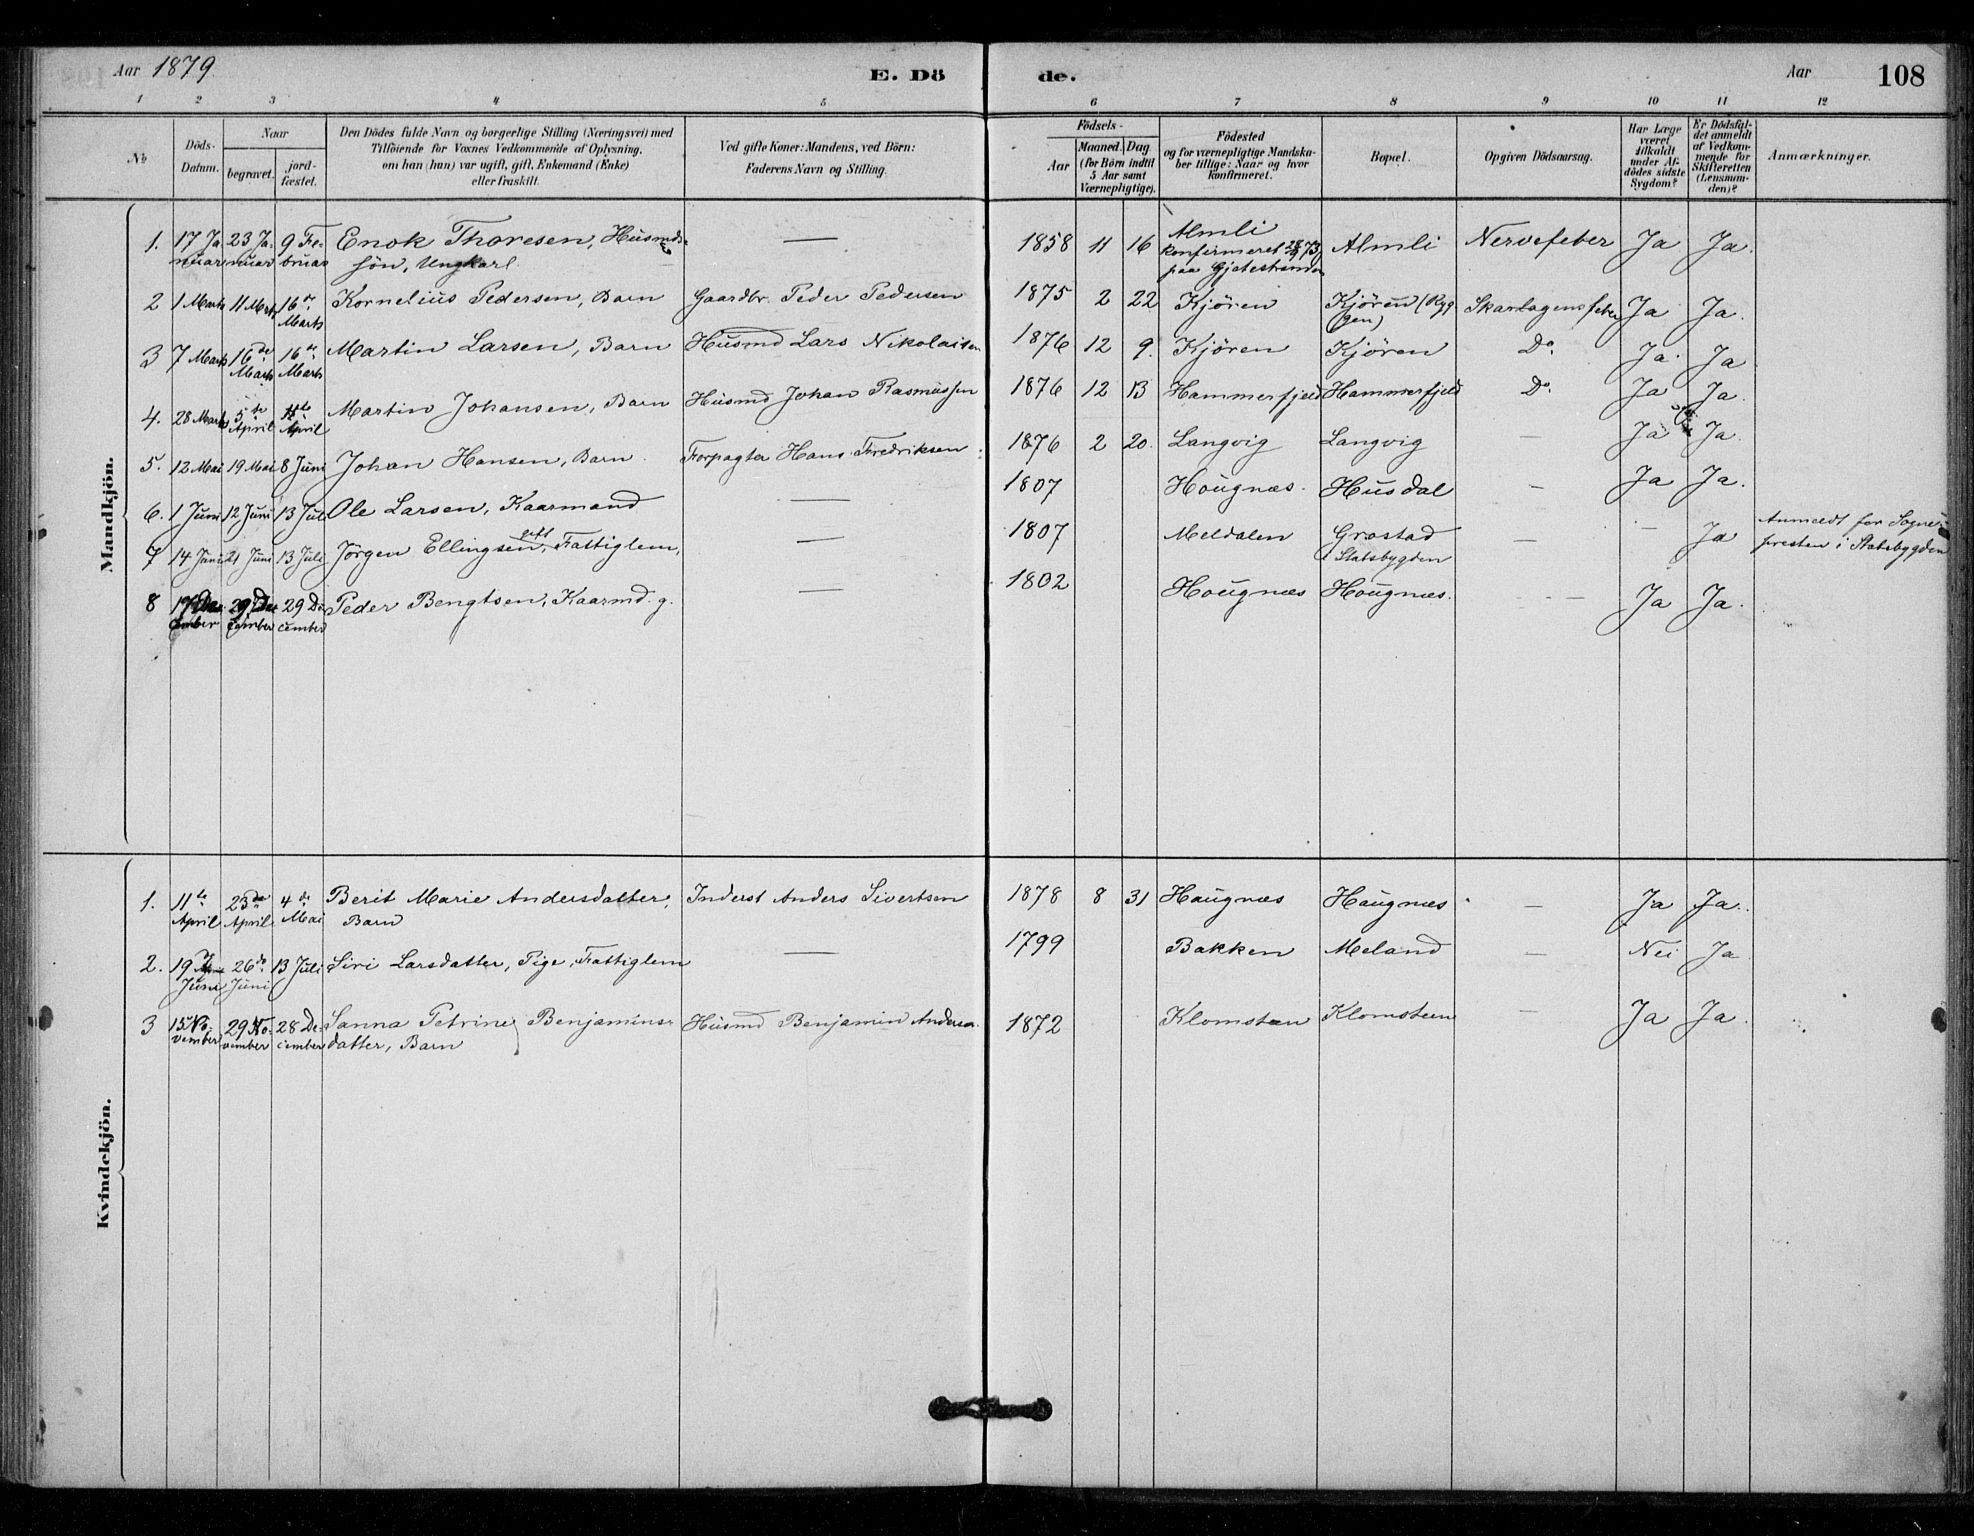 Aar 1879
E. Dö
de.
Aar
108
1 2 3 4 5 6 7 8 9 10 11 12
No
Döds-
Datum.
Naar
begravet.
jord-
fæstet.
Den Dödes fulde Navn og borgerlige Stilling (Næringsvei) med
Tilföiende for Voxnes Vedkommende af Oplysning,
om han (hun) var ugift, gift, Enkemand (Enke)
eller fraskilt.
Ved gifte Koner: Mandens, ved Börn:
Faderens Navn og Stilling.
Födsels-
Aar
Maaned. Dag
(for Börn indtil
5 Aar samt
Værnepligtige).
Födested
og for værnepligtige Mandska-
ber tillige: Naar og hvor
konfirmeret.
Bopæl.
Opgiven Dödsaarsag.
Har Læge
været
tilkaldt
under Af-
dödes sidste
Sygdom?
Er Dödsfal-
det anmeldt
af Vedkom-
mende for
Skifteretten
(Lensman-
den)?
Anmærkninger.
Mandkjön.
1. 17 Ja 23 Ja- 9 Fe- Enok Thoresen, Husmds- — 1858 11 16 Almli Almli Nervefeber Ja Ja.
nuar nuar bruar sön, Ungkarl. konfirmeret 28/9 73
paa Gjetestranden
2 1 Marts 11 Marts 16de Kornelius Pedersen, Barn Gaardbr. Peder Pedersen 1875 2 22 Kjören Kjören (Ryg Skarlagensfeber Ja Ja.
Marts gen)
3 7 Marts 16de 16de Martin Larsen, Barn Husmd Lars Nikolaisen 1876 12 9. Kjören Kjören Do. Ja. Ja
Marts Marts
4. 28 Marts 5te Martin Johansen, Barn Husmd Johan Rasmussen 1876 12 13 Hammerfjeld Hammerfjeld Do. Ja Ja.
April April
5. 12 Mai 19 Mai 8 Juni Johan Hansen, Barn. Forpagter Hans Fredriksen 1876 2 20. Langvig Langvig — Ja Ja.
6. 1 Juni 12 Juni 13 Juli Ole Larsen, Kaarmand — 1807 Hougnæs. Husdal — Ja Ja.
gift
7 14 Juni 21 Juni 13 Juli Jörgen Ellingsen, Fattiglem, — 1807 Meldalen Grøstad — — Ja Anmeldt for Sogne-
i Statsbygden presten i Statsbygden
8 17 De- 29 De- 29 De Peder Bengtsen, Kaarmd. g. — 1802 Hougnæs Hougnæs. — Ja Ja.
cember cember cember
Kvindekjön.
1. 11te 23de 4de Berit Marie Andersdatter, Inderst Anders Sivertsen 1878 8 31 Haugnæs Haugnæs — Ja Ja.
April April Mai Barn
2. 19 26de 13 Juli Siri Larsdatter, Pige, Fattiglem — 1799 Bakken Meland — Nei Ja
Juni Juni
3 15 No- 29 No- 28 De- Sanna Petrine Benjamins- Husmd Benjamin Andersen. 1872 Klomsteen Klomsteen — Ja Ja.
vember vember cember datter, Barn